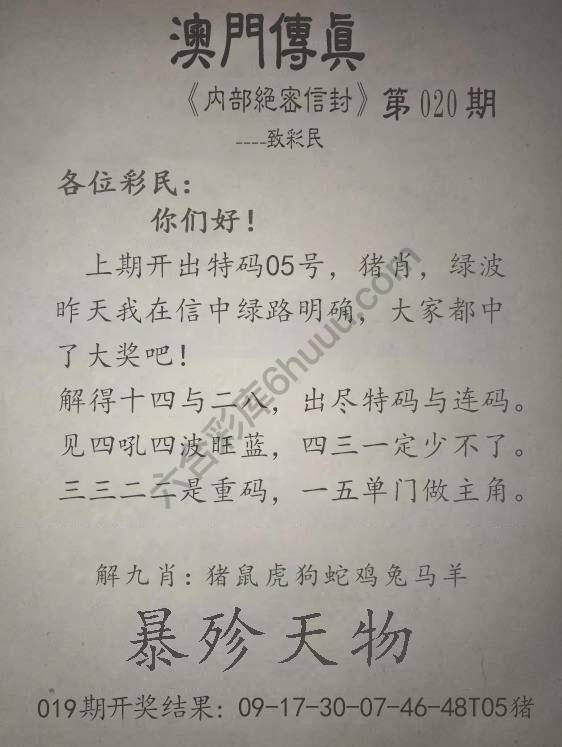 澳門傳真
《内部絕密信封》第020期
----致彩民
各位彩民：
你们好！
上期开出特码05号，猪肖，绿波
昨天我在信中绿路明确，大家都中
了大奖吧！
解得十四与二八，出尽特码与连码。
见四吼四波旺蓝，四三一定少不了。
三三二二是重码，一五单门做主角。
解九肖：猪鼠虎狗蛇鸡兔马羊
暴殄天物
019期开奖结果：09-17-30-07-46-48T05猪
六合彩库6huuu.com